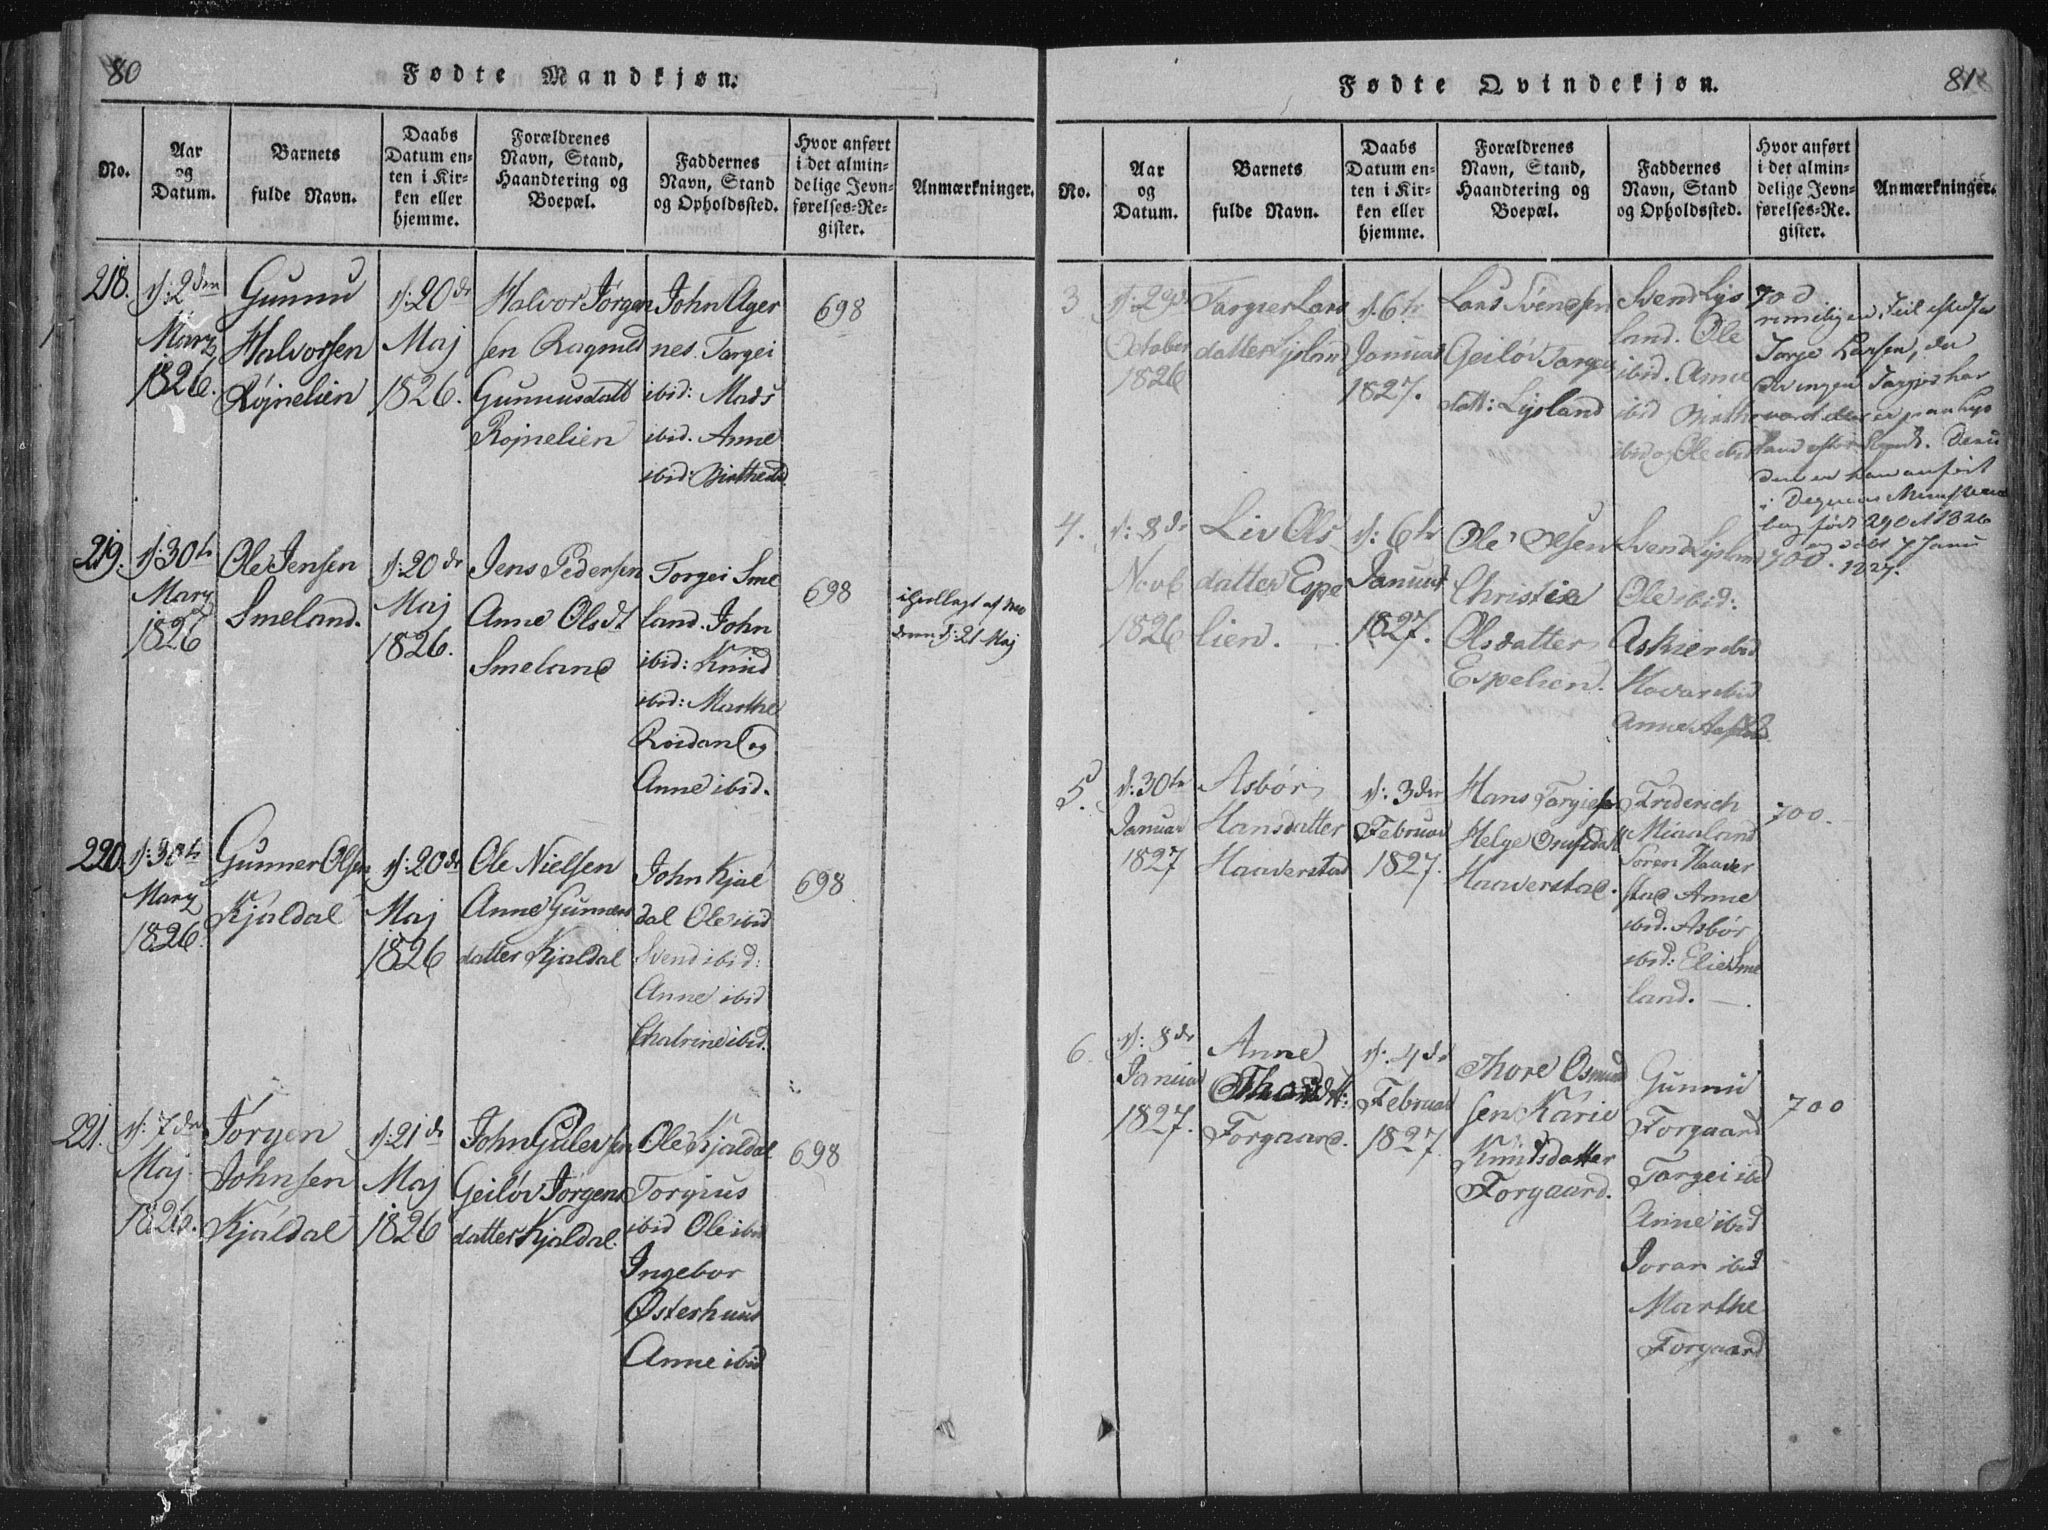 80
Fødte Mandkjøn.
No.
Aar
og
Datum.
Barnets
fulde Navn.
Daabs
Datum en-
ten i Kir-
ken eller
hjemme.
Forældrenes
Navn, Stand,
Haandtering og
Boepæl.
Faddernes
Navn, Stand
og Opholdssted.
Hvor anført
i det almin-
delige Jevn-
førelses-Re-
gister.
Anmærkninger.
218.
d: 2den
Martz
1826.
Gunnu
Halvorsen
Röjnelien
d: 20de
Maj
1826.
Halvor Jörgen
sen Ragnild
Gunnusdatt
Rojnelien
John Ager
nes. Targei
ibid: Mads
ibid. Anne
ibid: Birthe ibid
698
219.
d: 30te
Martz
1826
Ole Jensen
Smeland.
d: 20de
Maj
1826.
Jens Pedersen
Anne Olsdt
Smeland
Torgei Sme
land. John
ibid: Knud
ibid: Marthe
Roidand og
Anne ibid.
698
d: 21 Maj
220.
d: 30te
Martz
1826.
Gunner Olsen
Kjaldal
d: 20de
Maj
1826
Ole Nielsen
Anne Gunners
datter Kjaldal
John Kjal
dal Ole ibid
Svend ibid:
Anne ibid
Chatrine ibid.
698
221.
d: 7de
Maj
1826.
Jörgen
Johnsen
Kjaldal
d: 21de
Maj
1826
John Gulevsen
Geilöv Jorgens
datter Kjaldal.
Ole Kjaldal
Torgius
ibid Ole ibid
Ingebor
Østerhuus
Anne ibid
698
81
Fødte Qvindekjøn.
No.
Aar
og
Datum.
Barnets
fulde Navn.
Daabs
Datum en-
ten i Kir-
ken eller
hjemme.
Forældrenes
Navn, Stand,
Haandtering og
Boepæl.
Faddernes
Navn, Stand
og Opholdssted.
Hvor anført
i det almin-
delige Jevn-
førelses-Re.
gister.
Anmærkninger.
3
d: 29de
October
1826
Targier Lars
datter Lijsland
d: 6te
Januar
1827.
Lars Svendsen
Geilöv Targei
datt: Lijsland
Svend Lijs
land. Ole
ibid. Anne
ibid Birthe
ibid og Ole ibid
700
rimeligen Feil
født 29 Oct 1826
7 Janu
1827.
4.
d: 8de
Novb
1826
Liv Ols
datter Espe
lien.
d: 6te
Januar
1827.
Ole Olsen
Christie
Olsdatter
Espelien.
Svend Lijsland
Ole ibid:
Askier ibid
Havar ibid
Anne
700.
5.
d: 30te
Januar
1827
Asbör
Hansdatter
Haaverstad
d: 3die
Februar
1827.
Hans Torgiesen
Helge Osulfsdatt
Haaverstad.
Friderich
Miaaland
Sören Haaver
stad Anne
ibid. Asbör
ibid: Elie Sme
land.
700.
6.
d: 8de
Januar
1827.
Anne
Thoresdtt:
Forgaard.
d: 4de
Februar
1827
Thore Osmund
sen Karie
Knudsdatter
Forgaard.
Gunnu
Forgaard
Targei ibid
Anne ibid
Joran ibid
Marthe
Forgaard
700